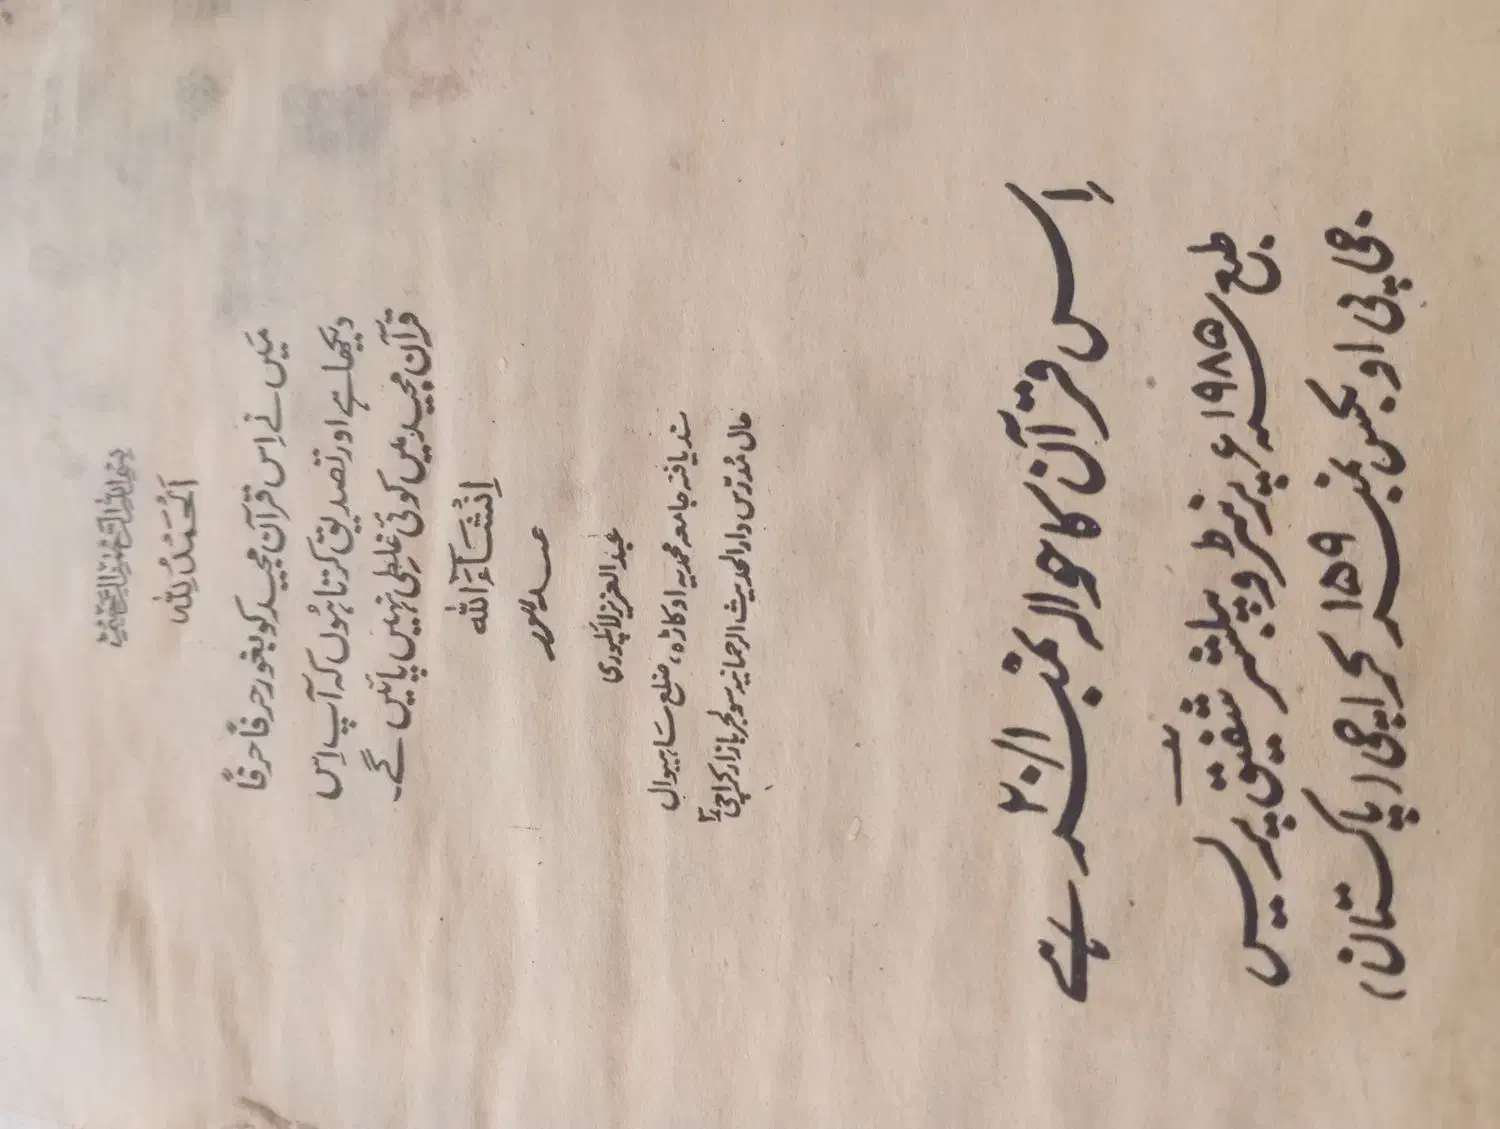 بسم اللہ الرحمٰن الرحیم
اَلْحَمْدُ لِلّٰہ
مَیں نے اِس قرآن مجید کو بغور حرفاً حرفاً
دیکھا ہے اور تصدیق کرتا ہُوں کہ آپ اِس
قرآن مجید میں کوئی غلطی نہیں پائیں گے۔
اِنْشَآءَ اللّٰہ
عبدالعزیز لائلپوری
سند یافتہ جامعہ محمدیہ اوکاڑہ، ضلع ساہیوال
حال مُدرّس دارالحدیث الرحمانیہ سولجر بازار کراچی
اِس قرآن کا حوالہ نمبر ۲۰/۱ ہے
طبع ۱۹۸۵ء پرنٹر و پبلشر شفیق پریس
جی پی او بکس نمبر ۱۵۹ کراچی (پاکستان)